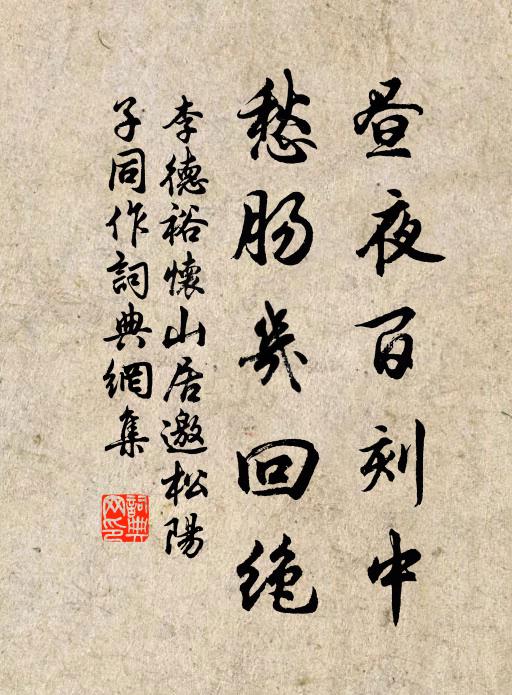 昼夜百刻中
愁肠幾回绝
李德裕懷山居邀松陽
子同作詞典網集
詞典
网印